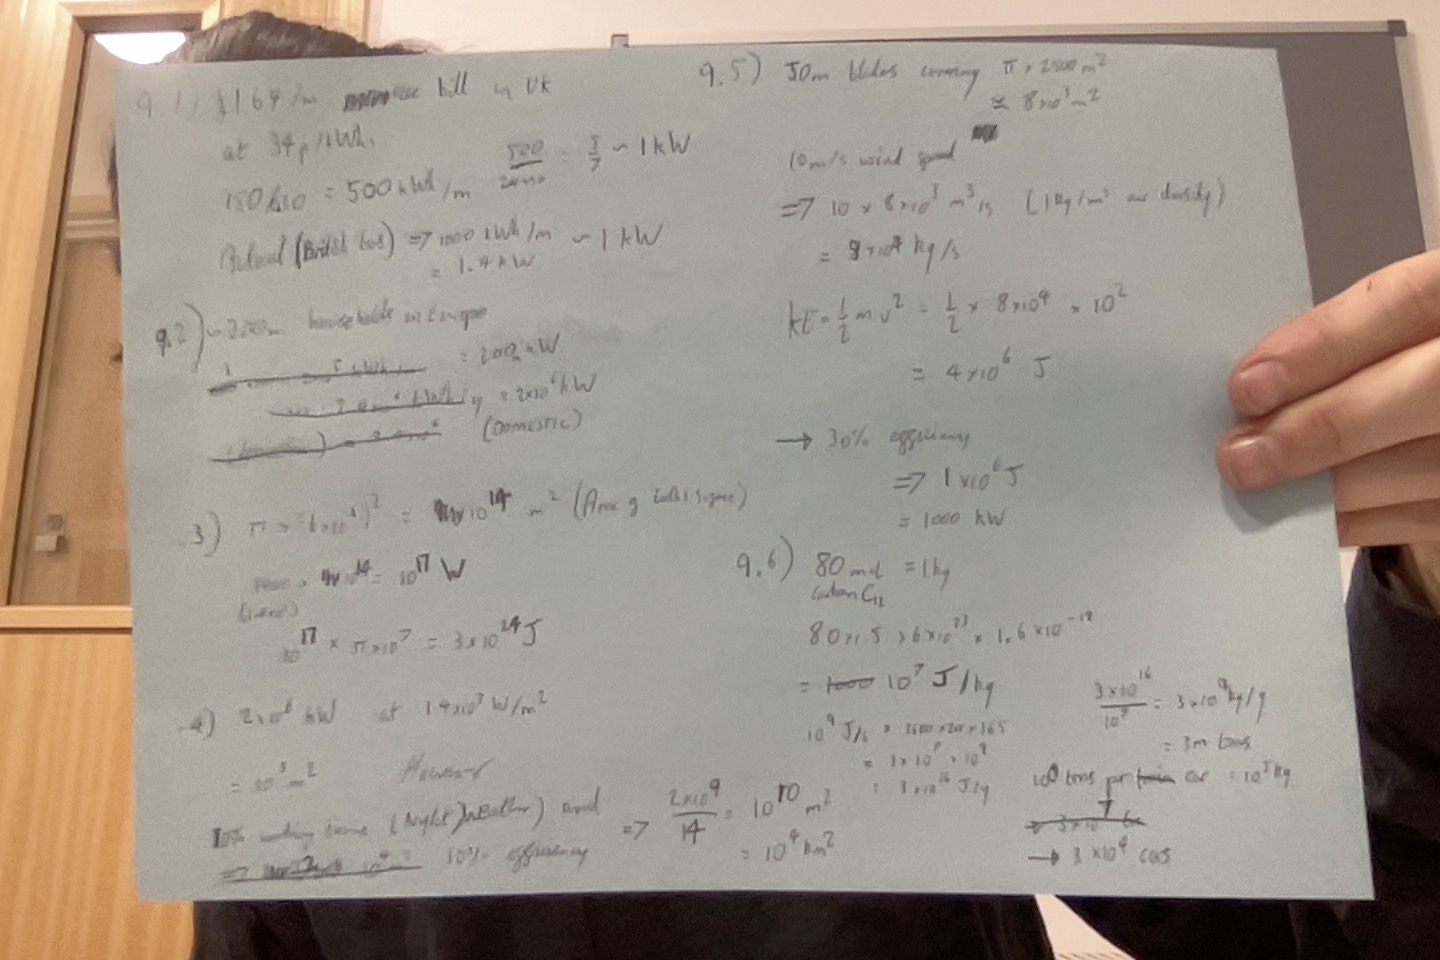 9.1) £164/m bill in UK
at 34p/kWh.
150/ = 500 kWh/m 500 = 5/7 ~ 1kW
(British Gas) => 1000 kWh/m ~ 1 kW
= 1.4 kW
9.2) ~ 200m households in Europe
= 200m kW
= 2x10⁸ kW
(Domestic)
3) π × (6x10⁶)² = 10¹⁴ m² (Area of Earth's
= 10¹⁷ W
10¹⁷ × π×10⁷ = 3×10²⁴ J
4) 2x10⁸ kW at 1.4x10³ W/m²
= m² However
10% time (Night/Weather) and
=> 10% efficiency
=> 2x10⁹/14 = 10¹⁰ m²
= 10⁴ km²
9.5) 50m blades covering π × 2500 m²
≃ 8x10³ m²
10m/s wind speed
=> 10 × 8x10³ m³/s (1kg/m³ air density)
= 8x10⁴ kg/s
KE = 1/2 m v² = 1/2 × 8x10⁴ × 10²
= 4x10⁶ J
→ 30% efficiency
=> 1x10⁶ J
= 1000 kW
9.6) 80 mol = 1kg
carbon C₁₂
80 × 5 × 6x10²³ × 1.6x10⁻¹⁹
= 1000 10⁷ J/kg
10⁹ J/s × 3600×24×365
= 3×10⁷ × 10⁹
= 3×10¹⁶ J/y
3×10¹⁶/10⁷ = 3×10⁹ kg/y
= 3m tons
100 tons per train car = 10⁵ kg
→ 3×10⁴ cars